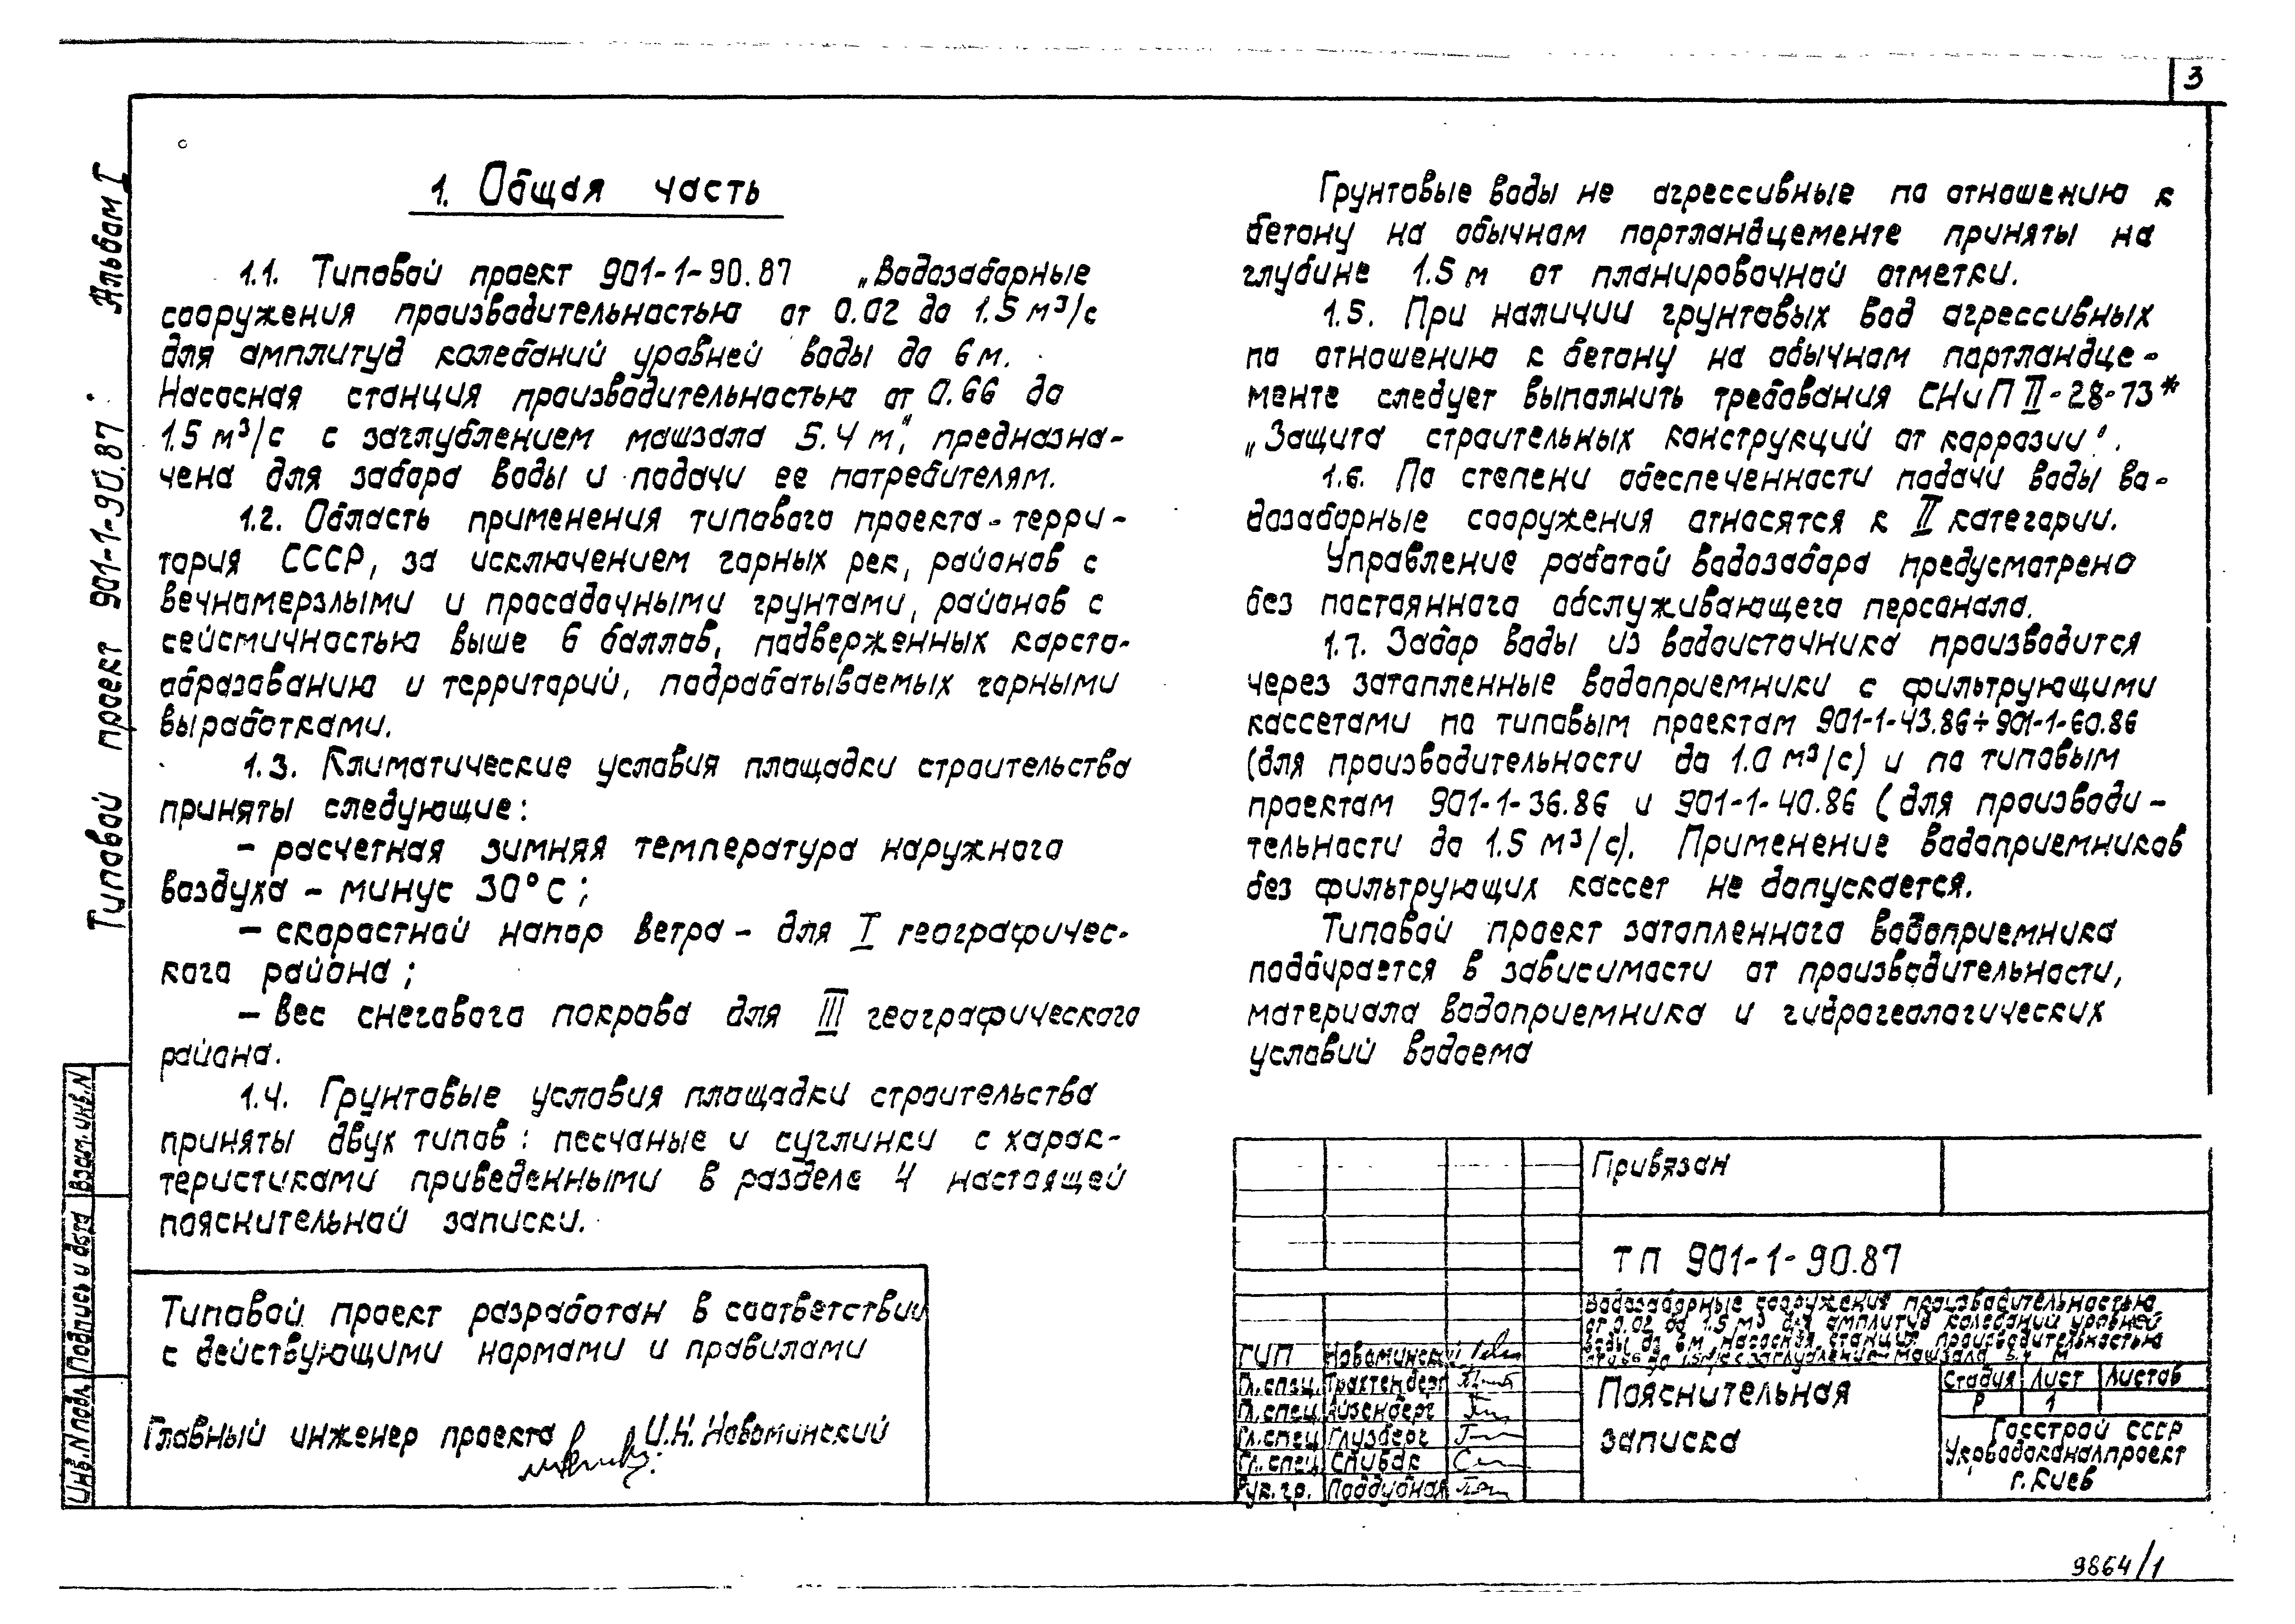 3
Альбом I
Типовой проект 901-1-90.87
1. Общая часть
1.1. Типовой проект 901-1-90.87 „Водозаборные
сооружения производительностью от 0.02 до 1.5 м³/с
для амплитуд колебаний уровней воды до 6 м.
Насосная станция производительностью от 0.66 до
1.5 м³/с с заглублением машзала 5.4 м", предназна-
чена для забора воды и подачи ее потребителям.
1.2. Область применения типового проекта - терри-
тория СССР, за исключением горных рек, районов с
вечномерзлыми и просадочными грунтами, районов с
сейсмичностью выше 6 баллов, подверженных карсто-
образованию и территорий, подрабатываемых горными
выработками.
1.3. Климатические условия площадки строительства
приняты следующие:
- расчетная зимняя температура наружного
воздуха - минус 30°С;
- скоростной напор ветра - для I географичес-
кого района;
- вес снегового покрова для III географического
района.
1.4. Грунтовые условия площадки строительства
приняты двух типов: песчаные и суглинки с харак-
теристиками приведенными в разделе 4 настоящей
пояснительной записки.
Типовой проект разработан в соответствии
с действующими нормами и правилами
Главный инженер проекта И.Н. Новоминский
Грунтовые воды не агрессивные по отношению к
бетону на обычном портландцементе приняты на
глубине 1.5 м от планировочной отметки.
1.5. При наличии грунтовых вод агрессивных
по отношению к бетону на обычном портландце-
менте следует выполнить требования СНиП II-28-73*
„Защита строительных конструкций от коррозии".
1.6. По степени обеспеченности подачи воды во-
дозаборные сооружения относятся к II категории.
Управление работой водозабора предусмотрено
без постоянного обслуживающего персонала.
1.7. Забор воды из водоисточника производится
через затопленные водоприемники с фильтрующими
кассетами по типовым проектам 901-1-43.86÷901-1-60.86
(для производительности до 1.0 м³/с) и по типовым
проектам 901-1-36.86 и 901-1-40.86 (для производи-
тельности до 1.5 м³/с). Применение водоприемников
без фильтрующих кассет не допускается.
Типовой проект затопленного водоприемника
подбирается в зависимости от производительности,
материала водоприемника и гидрогеологических
условий водоема
Привязан
ТП 901-1-90.87
Водозаборные сооружения производительностью
от 0.02 до 1.5 м³ для амплитуд колебаний уровней
воды до 6м. Насосная станция производительностью
от 0.66 до 1.5 м³/с с заглублением машзала 5.4 м
ГИП Новоминский
Гл.спец. Трахтенберг
Гл.спец. Айзенберг
Гл.спец. Глузберг
Гл.спец. Спивак
Рук.гр. Поддубная
Пояснительная
записка
Стадия Лист Листов
Р 1
Госстрой СССР
Укрводоканалпроект
г. Киев
Взам. инв. N
Подпись и дата
Инв. N подл.
9864/1